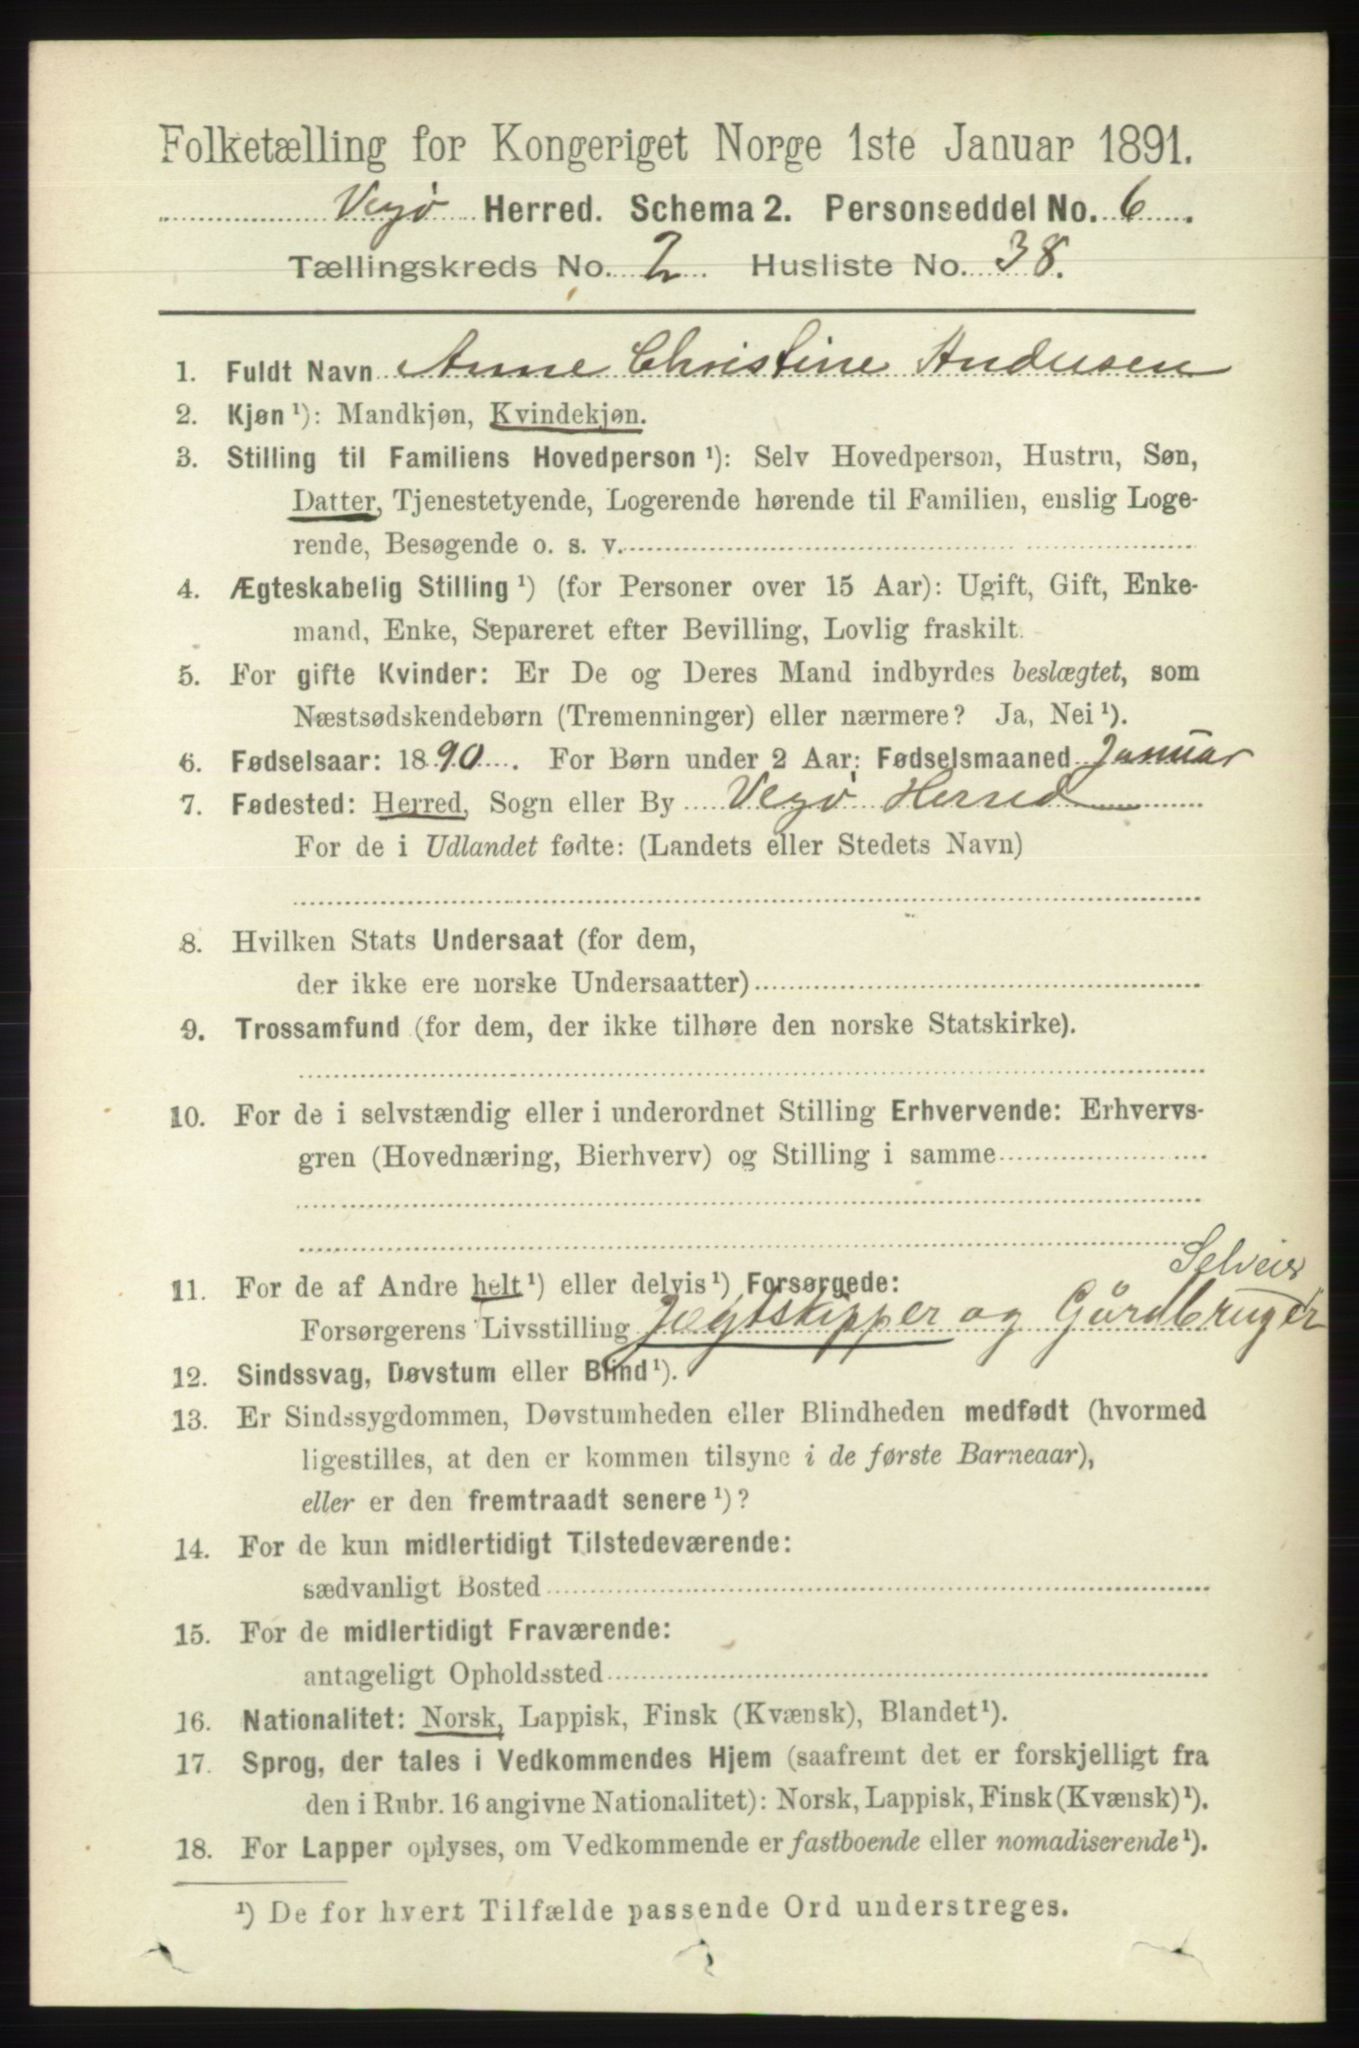 Folketælling for Kongeriget Norge 1ste Januar 1891.
Vegø Herred. Schema 2. Personseddel No. 6.
Tællingskreds No. 2 Husliste No. 38.
1. Fuldt Navn Anne Christine Andersen
2. Kjøn ¹): Mandkjøn, Kvindekjøn.
3. Stilling til Familiens Hovedperson ¹): Selv Hovedperson, Hustru, Søn,
Datter, Tjenestetyende, Logerende hørende til Familien, enslig Loge-
rende, Besøgende o. s. v.
4. Ægteskabelig Stilling ¹) (for Personer over 15 Aar): Ugift, Gift, Enke-
mand, Enke, Separeret efter Bevilling, Lovlig fraskilt.
5. For gifte Kvinder: Er De og Deres Mand indbyrdes beslægtet, som
Næstsødskendebørn (Tremenninger) eller nærmere? Ja, Nei ¹).
6. Fødselsaar: 1890. For Børn under 2 Aar: Fødselsmaaned Januar
7. Fødested: Herred, Sogn eller By Vegø Herred
For de i Udlandet fødte: (Landets eller Stedets Navn)
8. Hvilken Stats Undersaat (for dem,
der ikke ere norske Undersaatter)
9. Trossamfund (for dem, der ikke tilhøre den norske Statskirke).
10. For de i selvstændig eller i underordnet Stilling Erhvervende: Erhvervs-
gren (Hovednæring, Bierhverv) og Stilling i samme
Selveier
11. For de af Andre helt ¹) eller delvis ¹) Forsørgede:
Forsørgerens Livsstilling Jægtskipper og Gårdbruger
12. Sindssvag, Døvstum eller Blind ¹).
13. Er Sindssygdommen, Døvstumheden eller Blindheden medfødt (hvormed
ligestilles, at den er kommen tilsyne i de første Barneaar),
eller er den fremtraadt senere ¹)?
14. For de kun midlertidigt Tilstedeværende:
sædvanligt Bosted
15. For de midlertidigt Fraværende:
antageligt Opholdssted
16. Nationalitet: Norsk, Lappisk, Finsk (Kvænsk), Blandet ¹).
17. Sprog, der tales i Vedkommendes Hjem (saafremt det er forskjelligt fra
den i Rubr. 16 angivne Nationalitet): Norsk, Lappisk, Finsk (Kvænsk) ¹).
18. For Lapper oplyses, om Vedkommende er fastboende eller nomadiserende ¹).
¹) De for hvert Tilfælde passende Ord understreges.